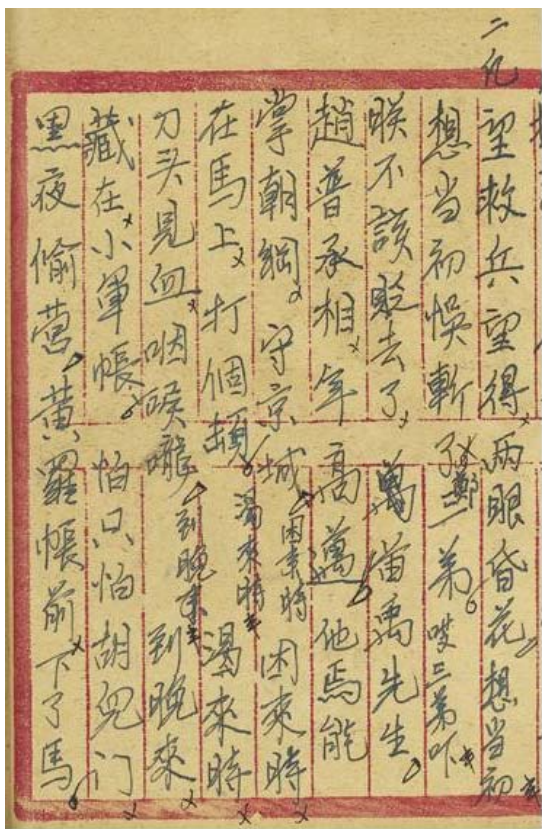 二六
望救兵望得兩眼昏花想當初
想當初悮斬了鄭三弟哎三弟吓
朕不該貶去了苗先生
趙普丞相年高邁他焉能
掌朝綱守京城困來時困來時
在馬上打個頓渴來時渴來時
刀头見血咽喉嚨到晚來到晚來
藏在小軍帳怕只怕胡兒门
黑夜偷营黃羅帳前下了馬